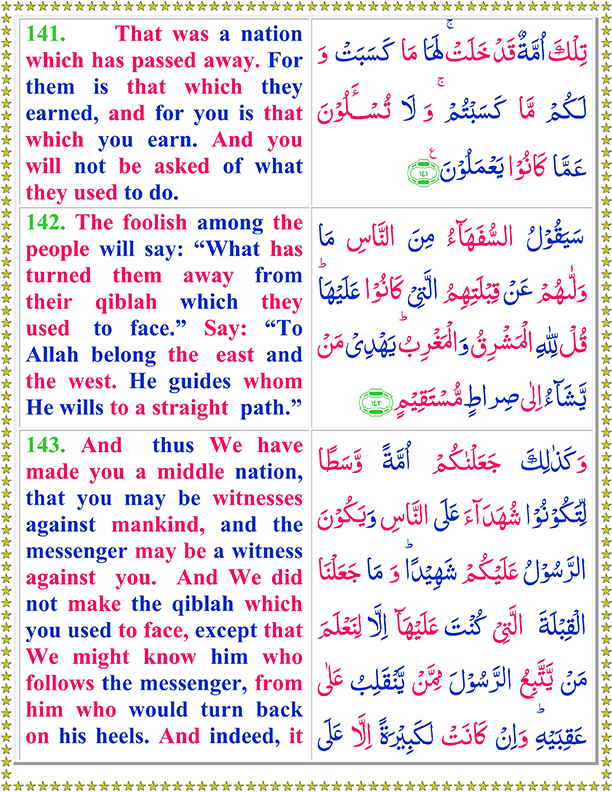 141. That was a nation
which has passed away. For
them is that which they
earned, and for you is that
which you earn. And you
will not be asked of what
they used to do.
تِلْكَ اُمَّةٌ قَدْ خَلَتْ ۚ لَهَا مَا كَسَبَتْ وَ
لَكُمْ مَّا كَسَبْتُمْ ۚ وَ لَا تُسْـَٔلُوْنَ
عَمَّا كَانُوْا يَعْمَلُوْنَ ۧ ﴿۱۴۱﴾
142. The foolish among the
people will say: “What has
turned them away from
their qiblah which they
used to face.” Say: “To
Allah belong the east and
the west. He guides whom
He wills to a straight path.”
سَيَقُوْلُ السُّفَهَآءُ مِنَ النَّاسِ مَا
وَلّٰىهُمْ عَنْ قِبْلَتِهِمُ الَّتِيْ كَانُوْا عَلَيْهَا ؕ
قُلْ لِّلّٰهِ الْمَشْرِقُ وَالْمَغْرِبُ ؕ يَهْدِيْ مَنْ
يَّشَآءُ اِلٰى صِراطٍ مُّسْتَقِيْمٍ ﴿۱۴۲﴾
143. And thus We have
made you a middle nation,
that you may be witnesses
against mankind, and the
messenger may be a witness
against you. And We did
not make the qiblah which
you used to face, except that
We might know him who
follows the messenger, from
him who would turn back
on his heels. And indeed, it
وَكَذٰلِكَ جَعَلْنٰكُمْ اُمَّةً وَّسَطًا
لِّتَكُوْنُوْا شُهَدَآءَ عَلَى النَّاسِ وَيَكُوْنَ
الرَّسُوْلُ عَلَيْكُمْ شَهِيْدًا ؕ وَ مَا جَعَلْنَا
الْقِبْلَةَ الَّتِيْ كُنْتَ عَلَيْهَآ اِلَّا لِنَعْلَمَ
مَنْ يَّتَّبِعُ الرَّسُوْلَ مِمَّنْ يَّنْقَلِبُ عَلٰى
عَقِبَيْهِ ؕ وَاِنْ كَانَتْ لَكَبِيْرَةً اِلَّا عَلَى